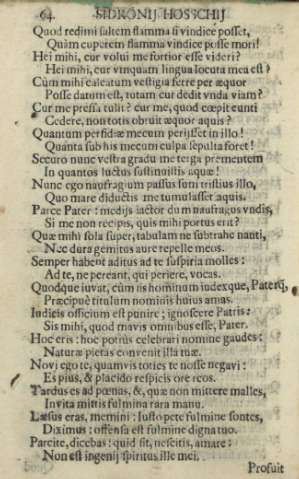 64. SIDRONII HOSSCHII
Quod redimi saltem flamma si vindice posset,
Quàm cuperem flamma vindice posse mori!
Hei mihi, cur volui me fortior esse videri?
Hei mihi, cur vnquam lingua locuta mea est?
Cùm mihi calcatum vestigia ferre per æquor
Posse datum est, totam cur dedit vnda viam?
Cur me pressa tulit? cur me, quod cœpit eunti
Cedere, non totis obruit æquor aquis?
Quantum perfidiæ mecum perijsset in illo!
Quanta sub his mecum culpa sepulta foret!
Securo nunc vestra gradu me terga prementem
In quantos luctus sustinuistis aquæ!
Nunc ego naufragium passus sum tristius illo,
Quo mare diductis me tumulasset aquis.
Parce Pater: medijs iactor dum naufragus vndis,
Si me non recipis, quis mihi portus erit?
Quæ mihi sola super, tabulam ne subtrahe nanti,
Nec dura gemitus aure repelle meos.
Semper habent aditus ad te suspiria molles:
Ad te, ne pereant, qui periere, vocas.
Quodque iuvat, cùm sis hominum iudexque, Paterq,
Præcipuè titulum nominis huius amas.
Iudicis officium est punire; ignoscere Patris:
Sis mihi, quod mavis omnibus esse, Pater.
Hoc eris: hoc potiùs celebrari nomine gaudes:
Naturæ pietas convenit illa tuæ.
Novi ego te, quamvis toties te nosse negavi:
Es pius, & placido respicis ore reos.
Tardus es ad pœnas, &, quæ non mittere malles,
Invita mittis fulmina rara manu.
Læsus eras, memini: iusto pete fulmine sontes,
Diximus: offensa est fulmine digna tuo.
Parcite, dicebas: quid sit, nescitis, amare:
Non est ingenij spiritus ille mei.
Profuit